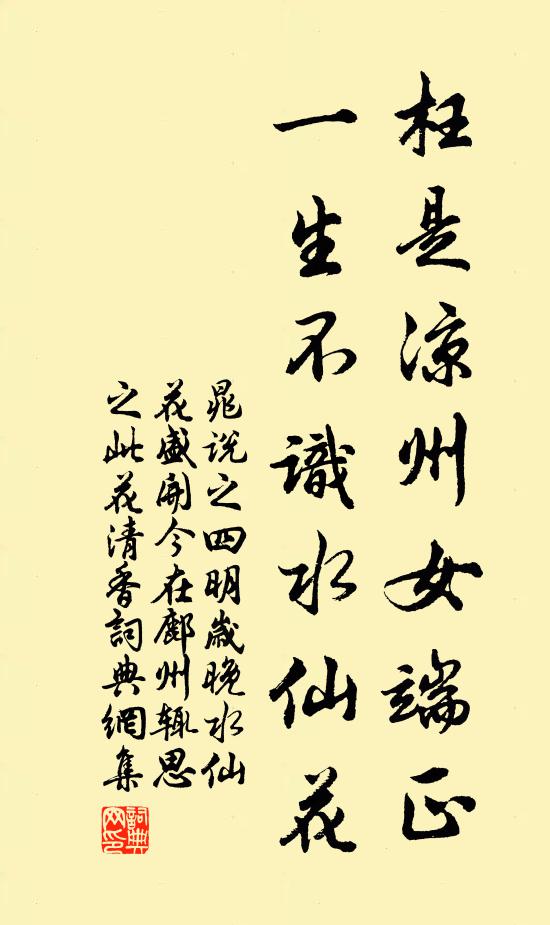 枉是涼州女端正
一生不識水仙花
晁說之四明歲晚水仙
花盛開今在鄜州輒思
之此花清香詞典網集
詞典
网印